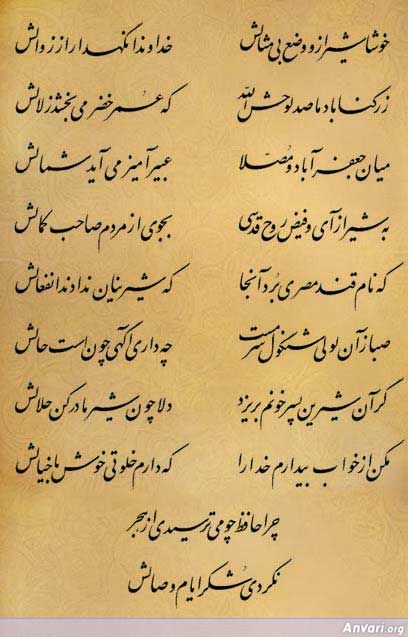 خوشا شیراز و وضع بی مثالش خداوندا نگهدار از زوالش
ز رکناباد ما صد لوحش الله که عمر خضر می بخشد زلالش
میان جعفرآباد و مصلا عبیرآمیز می آید شمالش
به شیراز آی و فیض روح قدسی بجوی از مردم صاحب کمالش
که نام قند مصری برد آنجا که شیرینان ندادند انفعالش
صبا ز آن لولی شنگول سرمست چه داری آگهی چون است حالش
گر آن شیرین پسر خونم بریزد دلا چون شیر مادر کن حلالش
مکن از خواب بیدارم خدا را که دارم خلوتی خوش با خیالش
چرا حافظ چو می ترسیدی از هجر
نکردی شکر ایام وصالش
Anvari.org